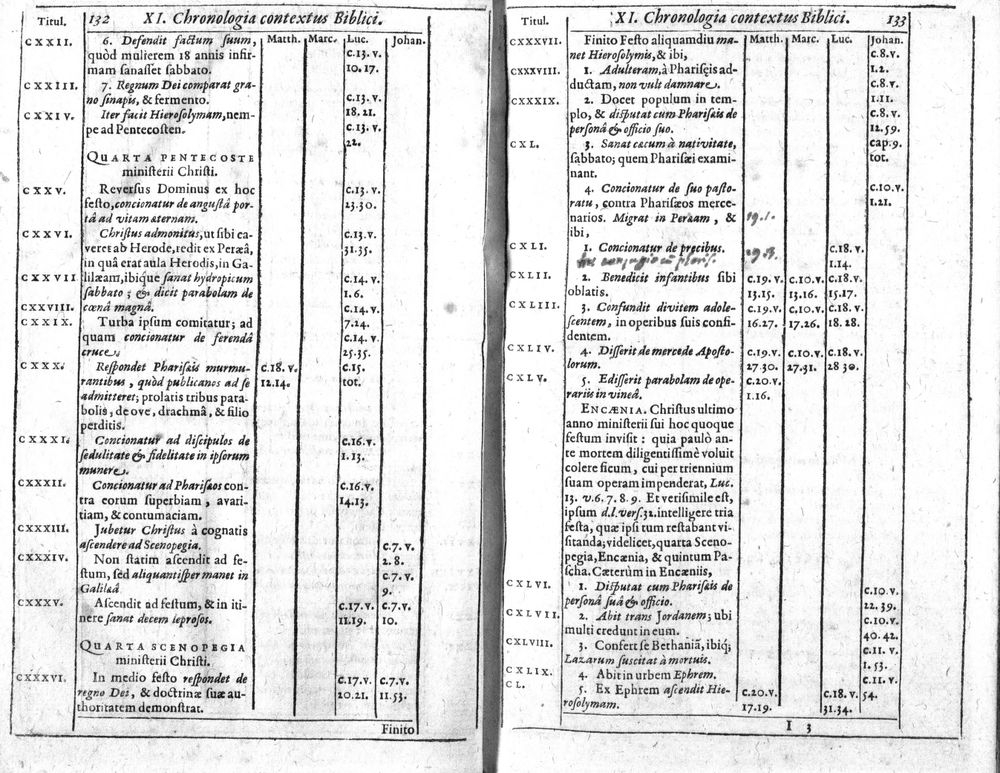 Titul. 132 XI. Chronologia contextus Biblici.
Matth. Marc. Luc. Johan.
CXXII. 6. Defendit factum suum,
quòd mulierem 18 annis infir- c.13. v.
mam sanasset sabbato. 10.17.
CXXIII. 7. Regnum Dei comparat gra-
no sinapis, & fermento. c.13. v.
CXXIV. Iter facit Hierosolymam, nem- 18.21.
pe ad Pentecosten. c.13. v.
22.
QUARTA PENTECOSTE
ministerii Christi.
CXXV. Reversus Dominus ex hoc c.13. v.
festo, concionatur de angustâ por- 23.30.
tâ ad vitam æternam.
CXXVI. Christus admonitus, ut sibi ca- c.13.v.
veret ab Herode, redit ex Peræâ, 31.35.
in quâ erat aula Herodis, in Ga-
CXXVII lilæam, ibiq́ue sanat hydropicum c.14. v.
sabbato; & dicit parabolam de 1.6.
CXXVIII. cœnâ magnâ. c.14. v.
CXXIX. Turba ipsum comitatur; ad 7.24.
quam concionatur de ferendâ c.14. v.
cruce. 25.35.
CXXX. Respondet Pharisæis murmu- c.18. v. c.15.
rantibus, quòd publicanos ad se 12.14. tot.
admitteret; prolatis tribus para-
bolis; de ove, drachmâ, & filio
perditis.
CXXXI. Concionatur ad discipulos de c.16.v.
sedulitate & fidelitate in ipsorum 1.13.
munere.
CXXXII. Concionatur ad Pharisæos con- c.16.v.
tra eorum superbiam, avari- 14.13.
tiam, & contumaciam.
CXXXIII. Jubetur Christus à cognatis
ascendere ad Scenopegia. c.7. v.
CXXXIV. Non statim ascendit ad fe- 2.8.
stum, sed aliquantisper manet in c.7. v.
Galilæâ 9.
CXXXV. Ascendit ad festum, & in iti- c.17. v. c.7. v.
nere sanat decem leprosos. 11.19. 10.
QUARTA SCENOPEGIA
ministerii Christi.
CXXXVI. In medio festo respondet de c.17. v. c.7. v.
regno Dei, & doctrinæ suæ au- 20.21. 11.53.
thoritatem demonstrat.
Finito
Titul. XI. Chronologia contextus Biblici. 133
Matth. Marc. Luc. Johan.
CXXXVII. Finito Festo aliquamdiu ma-
net Hierosolymis, & ibi, c.8. v.
CXXXVIII. 1. Adulteram, à Pharisęis ad- 1.2.
ductam, non vult damnare. c.8. v.
CXXXIX. 2. Docet populum in tem- 1.11.
plo, & disputat cum Pharisæis de c.8. v.
personâ & officio suo. 12.59.
CXL. 3. Sanat cæcum à nativitate, cap.9.
sabbato; quem Pharisæi exami- tot.
nant.
4. Concionatur de suo pasto- c.10.v.
ratu, contra Pharisæos merce- 1.21.
narios. Migrat in Peræam, & 19.1.
ibi,
CXLI. 1. Concionatur de precibus. c.18. v.
1.14.
CXLII. 2. Benedicit infantibus sibi c.19. v. c.10. v. c.18. v.
oblatis. 13.15. 13.16. 15.17.
CXLIII. 3. Confundit divitem adole- c.19. v. c.10. v. c.18. v.
scentem, in operibus suis confi- 16.27. 17.26. 18.28.
dentem.
CXLIV. 4. Disserit de mercede Aposto- c.19. v. c.10. v. c.18. v.
lorum. 27.30. 27.31. 28 30.
CXLV. 5. Edisserit parabolam de ope- c.20.v.
rariis in vineâ. 1.16.
ENCÆNIA. Christus ultimo
anno ministerii sui hoc quoque
festum invisit: quia paulò an-
te mortem diligentissimè voluit
colere ficum, cui per triennium
suam operam impenderat, Luc.
13. v.6.7.8.9. Et verisimile est,
ipsum d.l. vers.32. intelligere tria
festa, quæ ipsi tum restabant vi-
sitanda; videlicet, quarta Sceno-
pegia, Encænia, & quintum Pa-
scha. Cæterùm in Encæniis,
CXLVI. 1. Disputat cum Pharisæis de c.10. v.
personâ suâ & officio. 22.39.
CXLVII. 2. Abit trans Jordanem; ubi c.10.v.
multi credunt in eum. 40.42.
CXLVIII. 3. Confert se Bethaniā, ibiq́; c.11. v.
Lazarum suscitat à mortuis. 1.53.
CXLIX. 4. Abit in urbem Ephrem. c.11. v.
CL. 5. Ex Ephrem ascendit Hie- c.20.v. c.18. v. 54.
rosolymam. 17.19. 31.34.
I 3